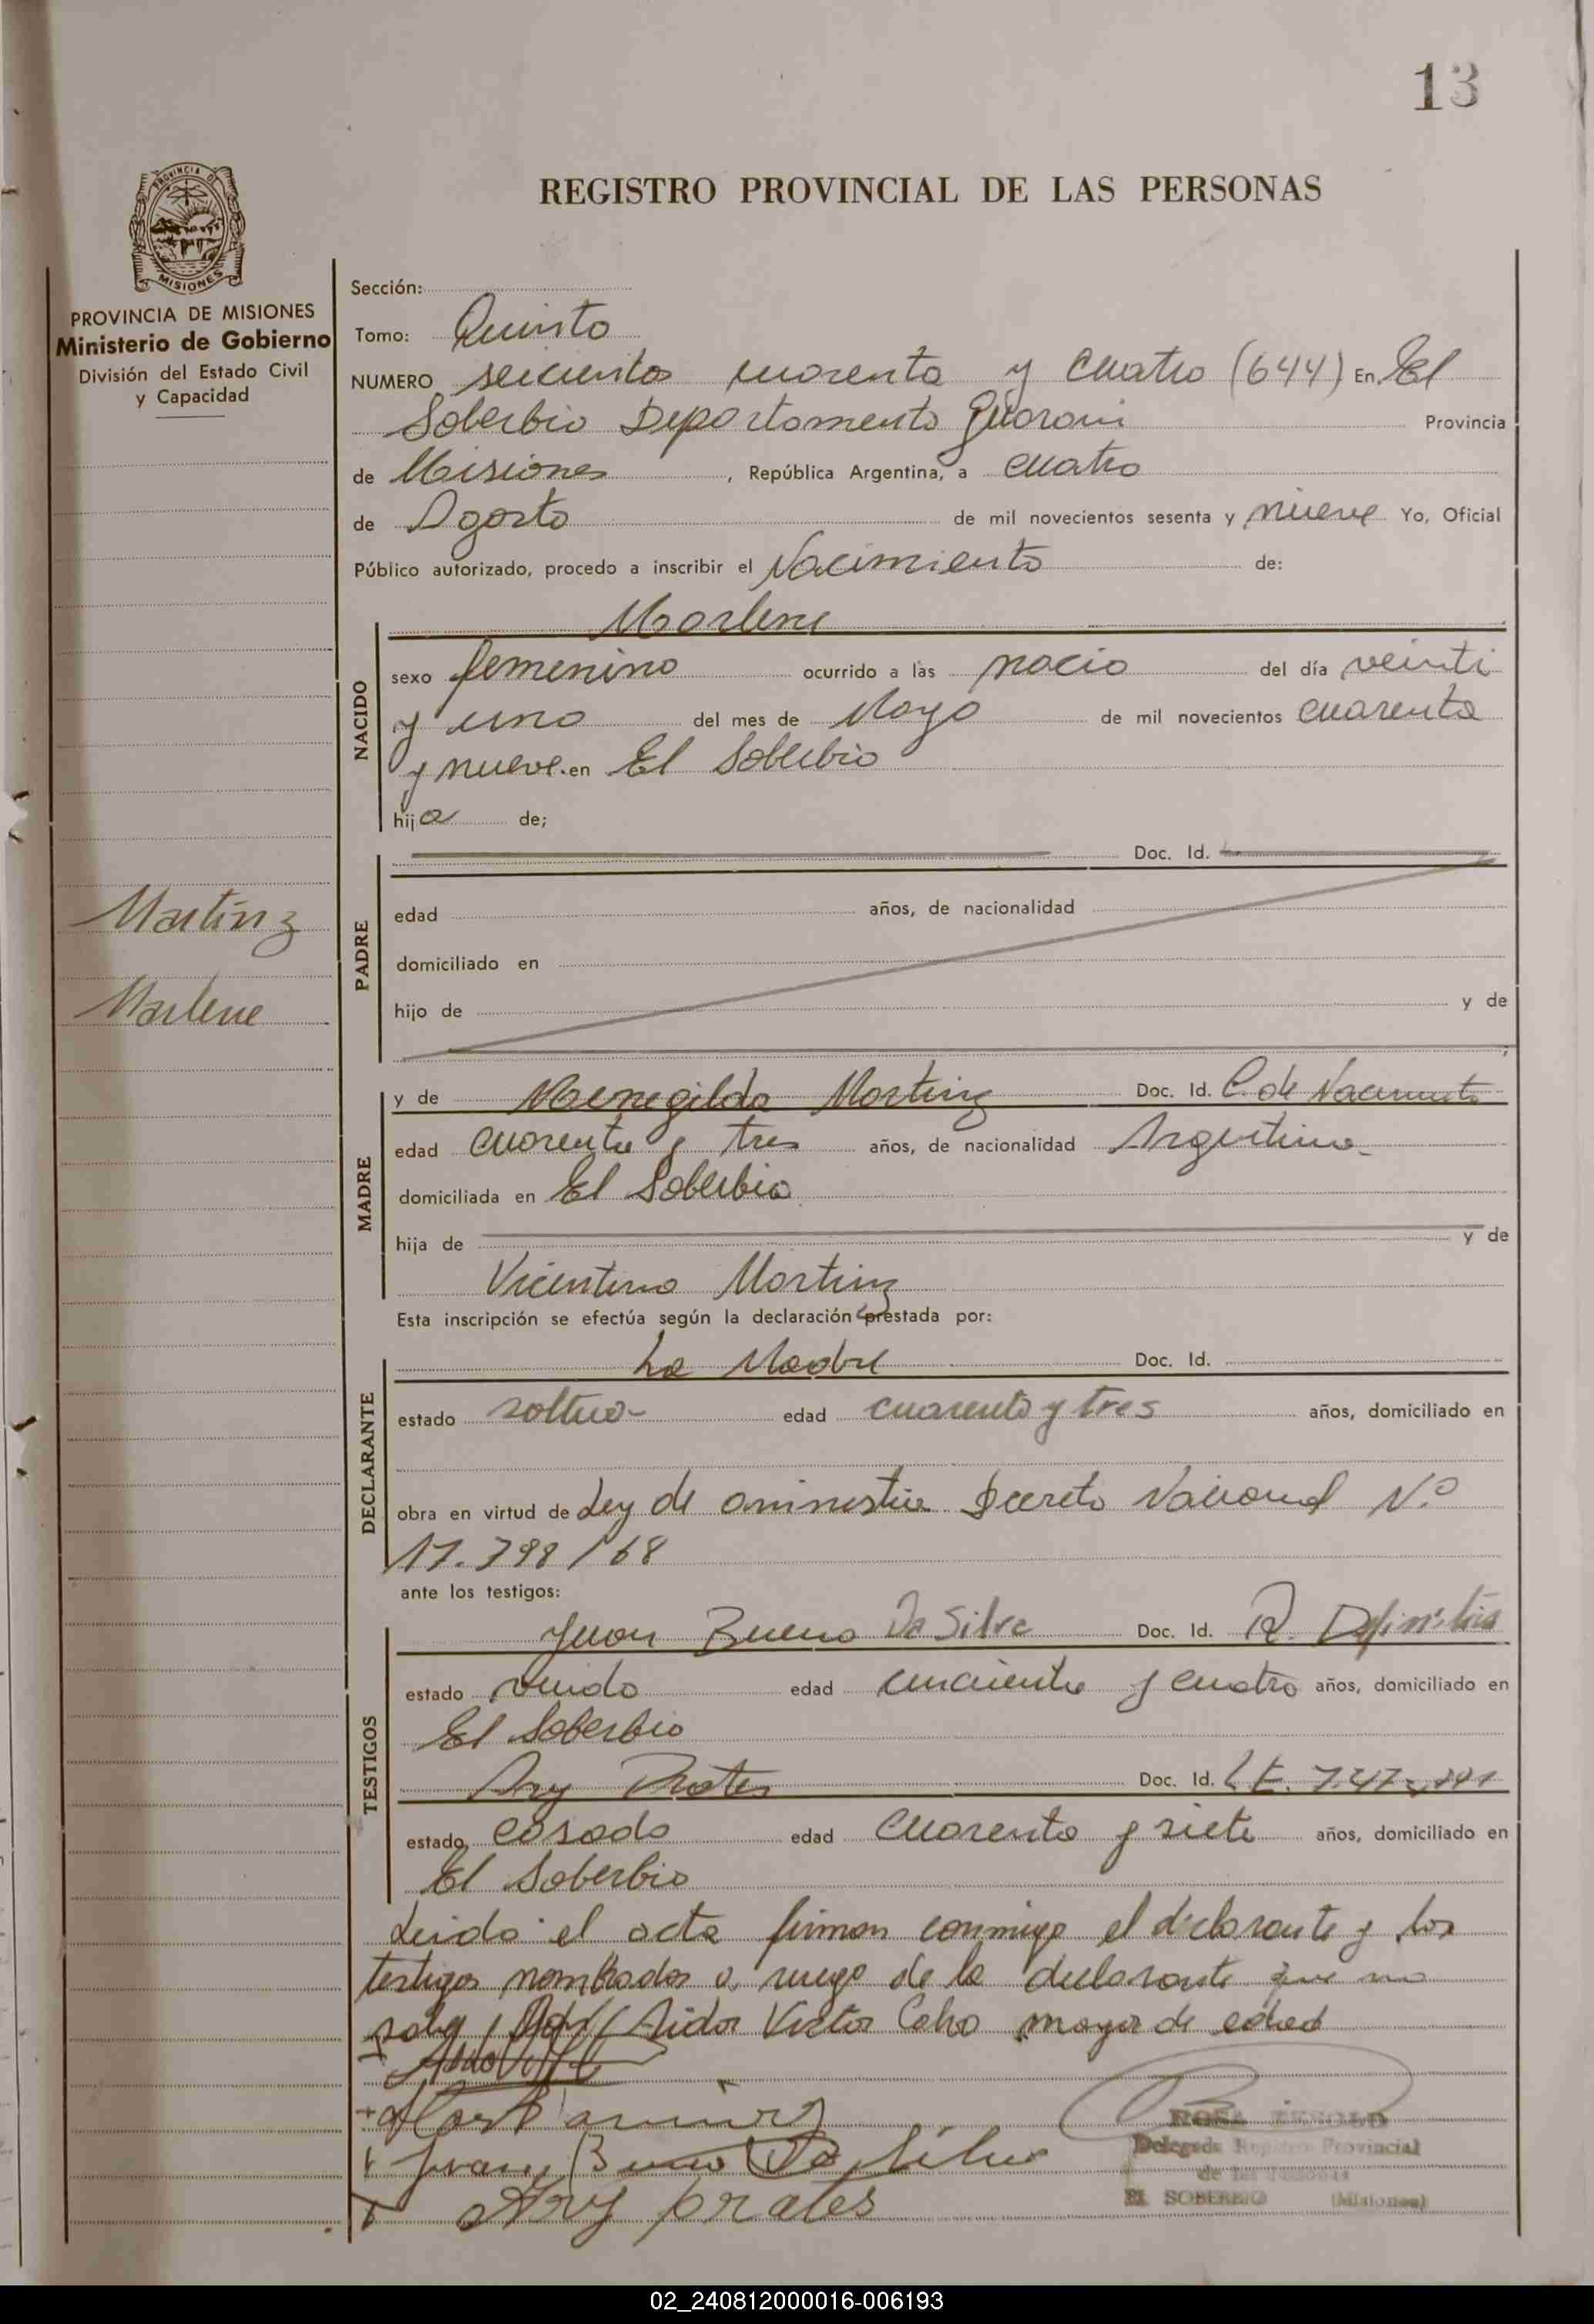 13
REGISTRO PROVINCIAL DE LAS PERSONAS
PROVINCIA DE
MISIONES
PROVINCIA DE MISIONES
Ministerio de Gobierno
División del Estado Civil
y Capacidad
Martinz
Marlene
Sección:
Tomo: Quinto
NUMERO seicientos cuarenta y cuatro (644) En El
Soberbio Departamento Guarani Provincia
de Misiones, República Argentina, a cuatro
de Agosto de mil novecientos sesenta y nueve Yo, Oficial
Público autorizado, procedo a inscribir el Nacimiento de:
Marlene
NACIDO
sexo femenino ocurrido a las nacio del día veinti
y uno del mes de Mayo de mil novecientos cuarenta
y nueve en El Soberbio
hija de;
PADRE
Doc. Id.
edad años, de nacionalidad
domiciliado en
hijo de y de
MADRE
y de Menegilda Martinz Doc. Id. C. de Nacimiento
edad cuarenta y tres años, de nacionalidad Argentina
domiciliada en El Soberbio
hija de y de
Vicentina Martinz
Esta inscripción se efectúa según la declaración prestada por:
DECLARANTE
La Madre Doc. Id.
estado soltera edad cuarenta y tres años, domiciliado en
obra en virtud de Ley de aminestia Decreto Nacional N.º
17.798/68
ante los testigos:
TESTIGOS
Juan Bueno Da Silva Doc. Id. R.
estado viudo edad cincuenta y cuatro años, domiciliado en
El Soberbio
Ary Prates Doc. Id. L.E.
estado casado edad cuarenta y siete años, domiciliado en
El Soberbio
Leida el acta firman conmigo el declarante y los
testigos nombrados a ruego de la declarante que no
sabe Victor mayor de edad
Juan Bueno Da Silva
Ary prates
Delegada Registro Provincial
de las
EL SOBERBIO (Misiones)
02_240812000016-006193